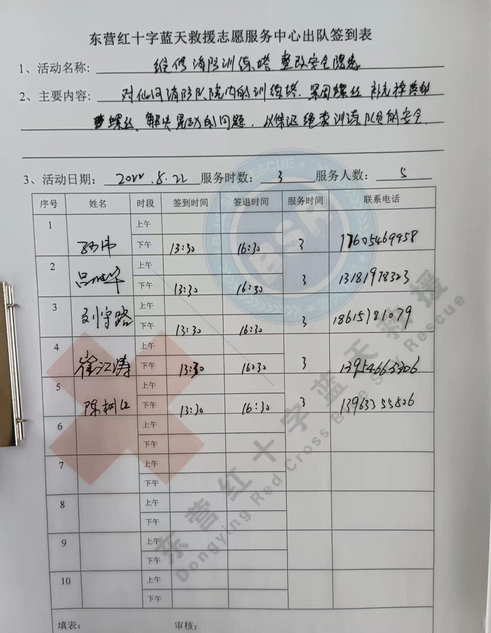 东营红十字蓝天救援志愿服务中心出队签到表
1、活动名称: 维修消防训练塔 整改安全隐患
2、主要内容: 对仙河消防队院内的训练塔,
螺丝, 解决 的问题, 以保证绳索训练队员的安全.
3、活动日期: 2022.8.22 服务时数: 3 服务人数: 5
序号 姓名 时段 签到时间 签退时间 服务时间 联系电话
1 上午
孙伟 下午 13:30 16:30 3 17605469958
2 上午
下午 13:30 16:30 3 13181978323
3 上午
刘守路 下午 13:30 16:30 3 18615781079
4 上午
崔江涛 下午 13:30 16:30 3 13954665306
5 上午
陈树江 下午 13:30 16:30 3 13963355626
6 上午
下午
7 上午
下午
8 上午
下午
9 上午
下午
10 上午
下午
填表: 审核:
东营红十字蓝天救援
Dongying Red Cross Blue Sky Rescue
BSR
RESCUE